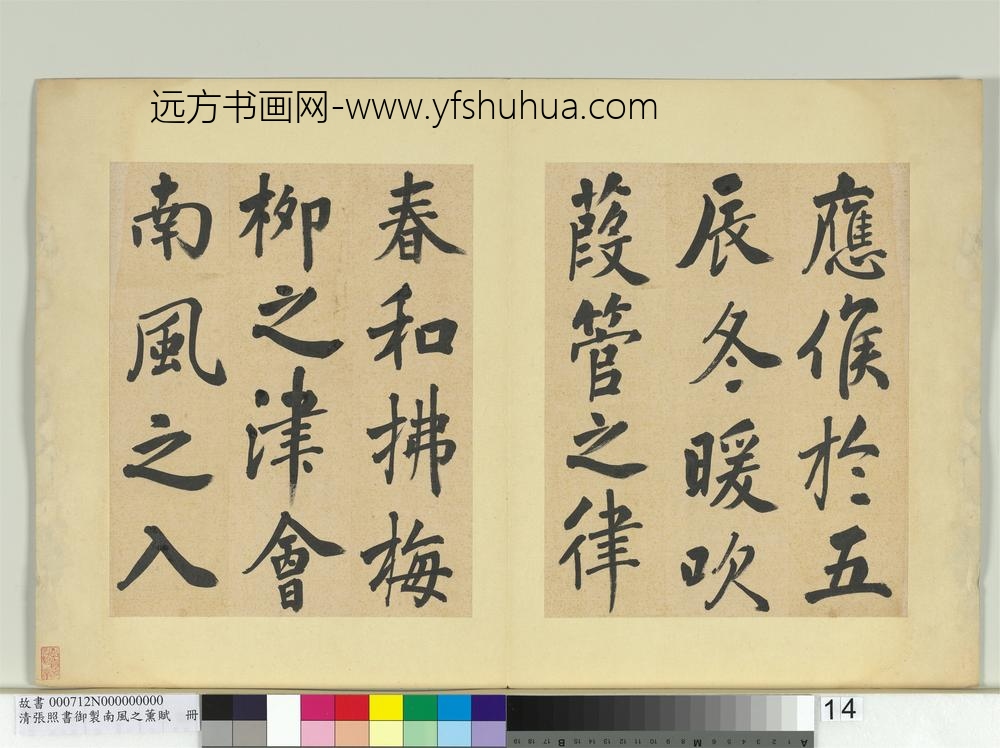 远方书画网-www.yfshuhua.com
應候於五
辰冬暖吹
葭管之律
春和拂梅
柳之津會
南風之入
故書 000712N000000000
清張照書御製南風之薰賦 冊
14
A
M
B
15
16
17
18
19